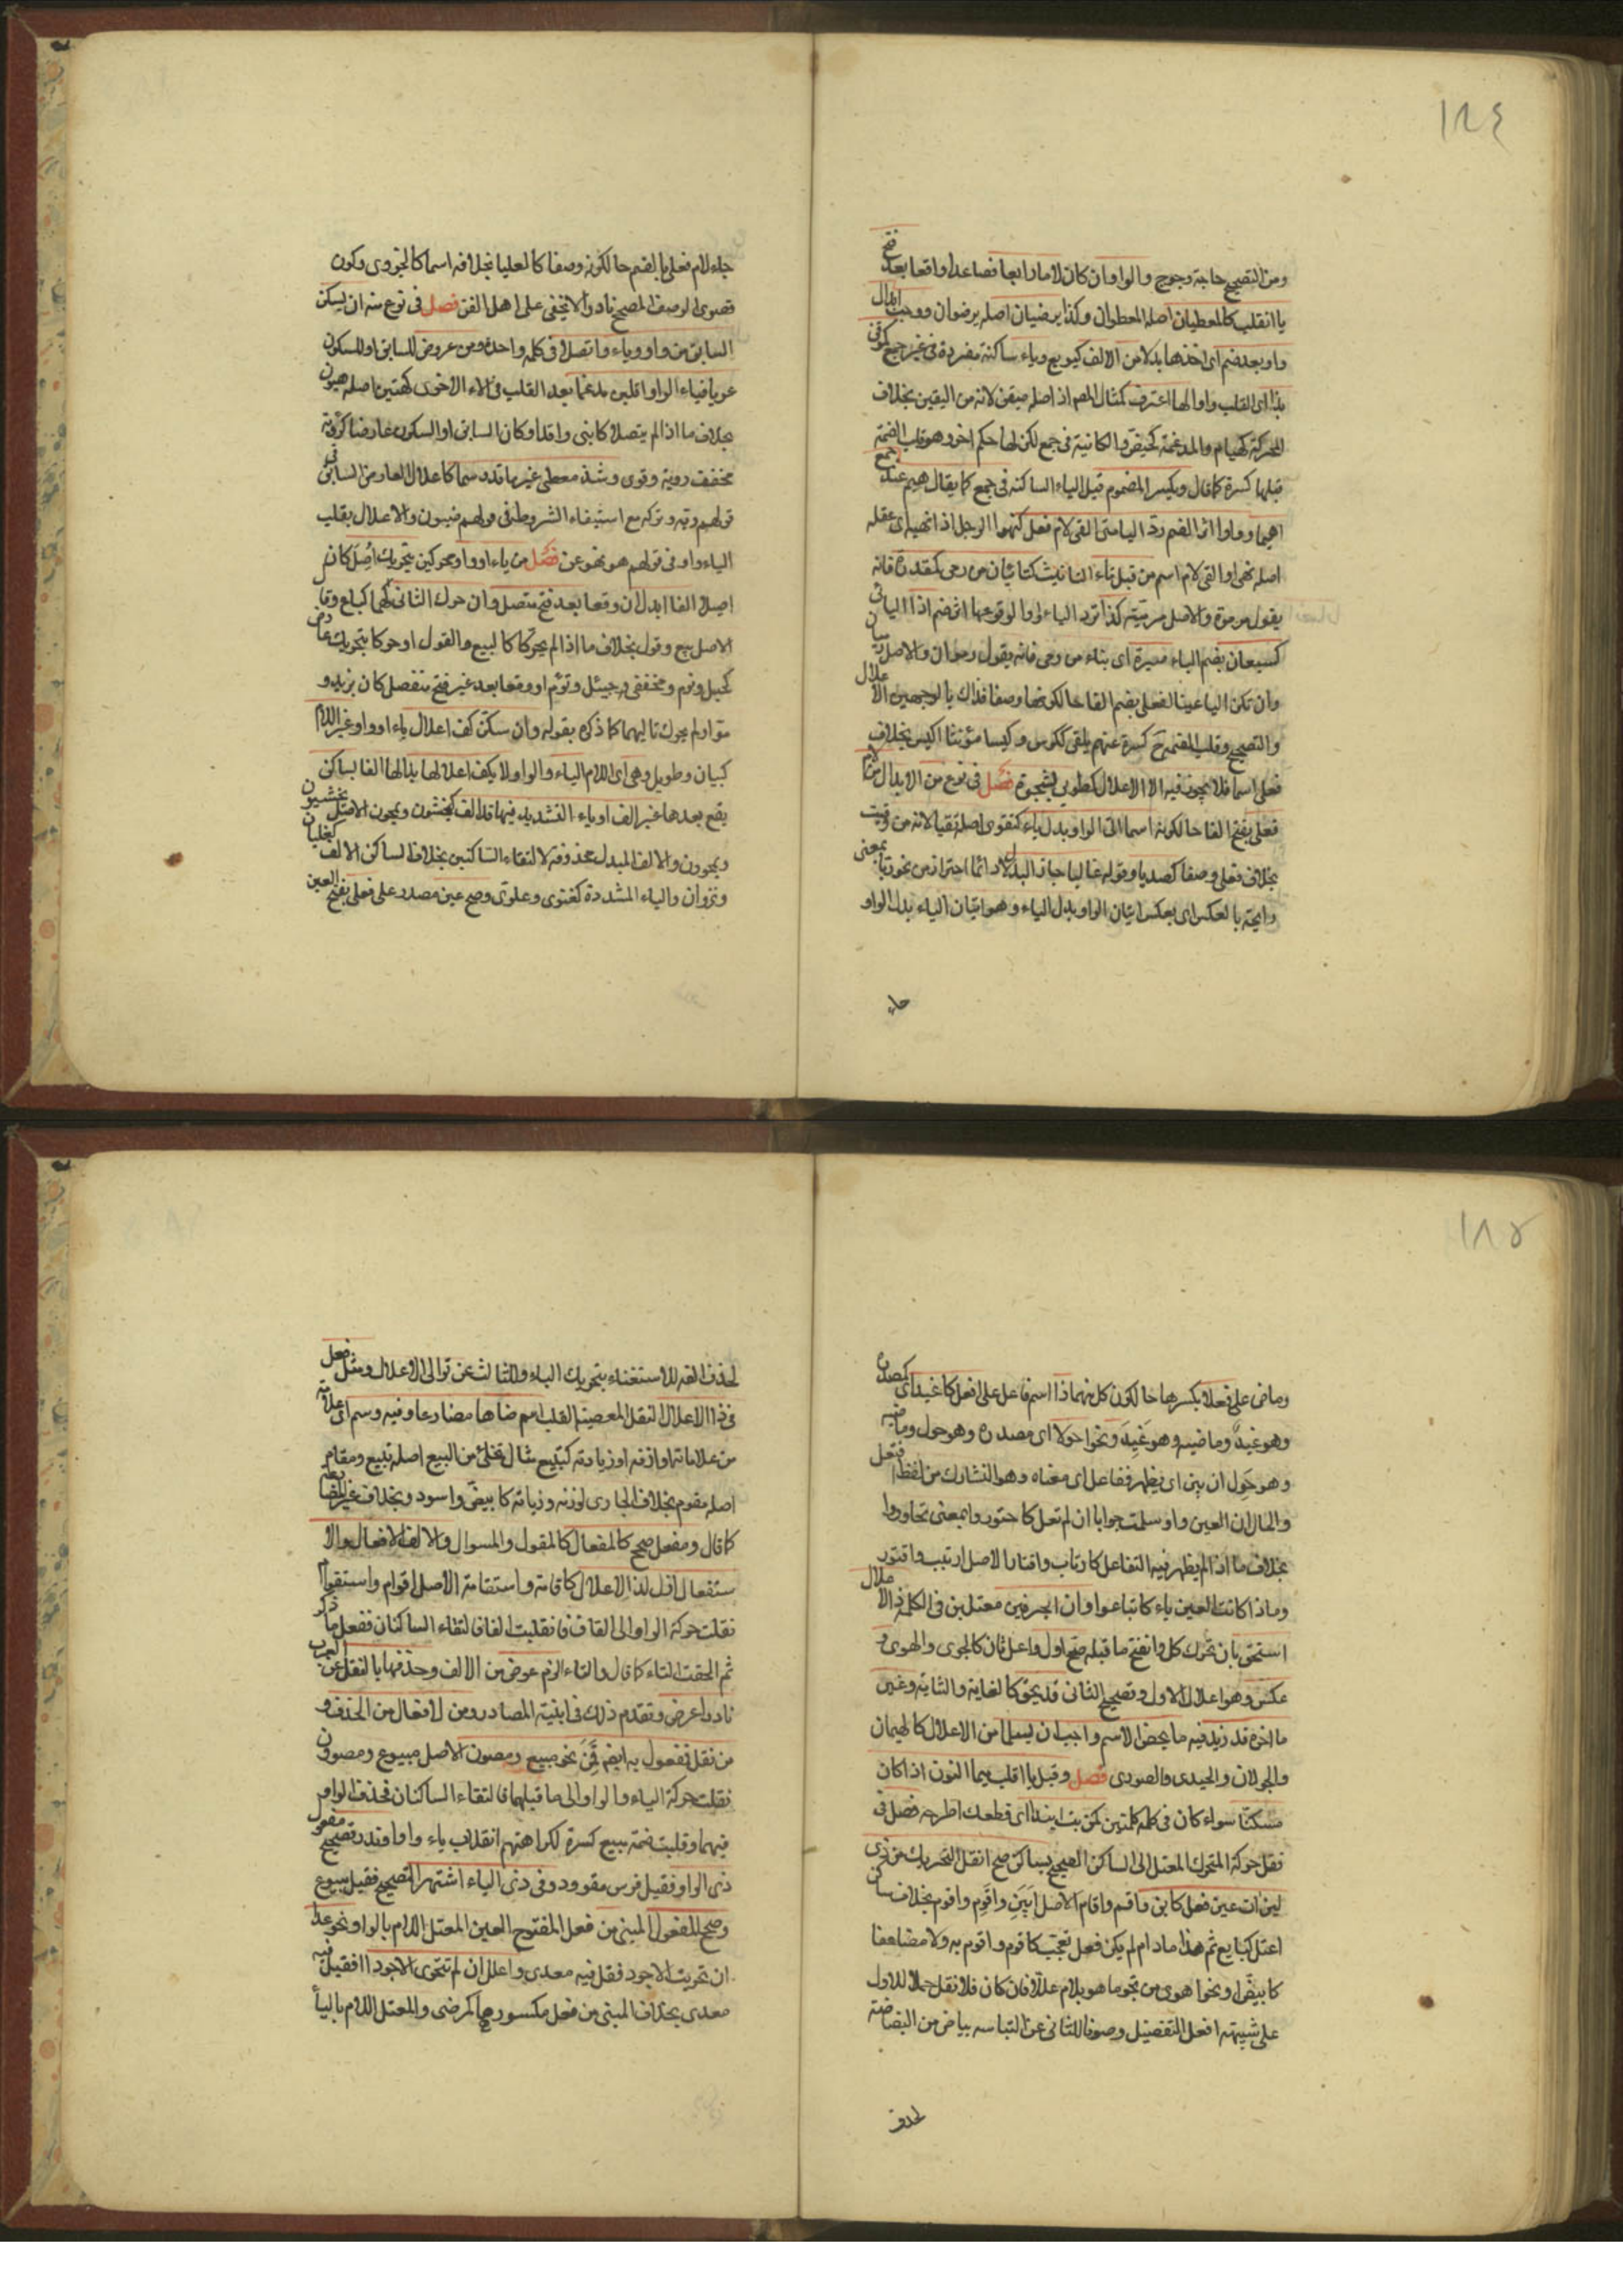 ١٨٤
ومن التصحيح حاجة وجوج والواو ان كان لاما رابعا فصاعدا واقعا بعد فتح
يا انقلب كالمعطيان اصله المعطوان وكذا يرضيان اصله يرضوان ووجب ابدال
واو بعد ضم اى اخذها بدلا من الالف كبويع وياء ساكنة مفردة فى غير جمع كموقن
بذا اى القلب واوا لها اعترف كمثال المص اذ اصله ميقن لانه من اليقين بخلاف
المحركة كهيام والمدغمة كحيض والكائنة فى جمع لكن لها حكم اخر وهو قلب الضمة
قبلها كسرة كما قال ويكسر المضموم قبل الياء الساكنة فى جمع كما يقال هيم عند جمع
اهيما وواوا اثر الضم رد اليا متى الفى لام فعل كنهو الرجل اذا انتهى اى عقله
اصله نهى او الفى لام اسم من قبل تاء التانيث كتا بان من رمى كمقدرة فانه
يقول مرموة والاصل مرمية كذا ترد الياء واوا لوقوعها اثر ضم اذا اليانى
كسبعان بضم الباء صيرة اى بناء من رمى فانه يقول رموان والاصل رميان
وان تكن اليا عينا لفعلى بضم الفا حالكونها وصفا فذاك بالوجهين الاعلال
والتصحيح وقلب الضمة ح كسرة عنهم يلقى ككوسى وكيسا مؤنثا اكيس بخلاف
فعلى اسما فلا يجوز فيه الا الاعلال كطوبى لشجرة فصل فى نوع من الابدال من لام
فعلى بفتح الفا حالكونه اسما اتى الواو بدل ياء كتقوى اصله تقيا لانه من وقيت
بخلاف فعلى وصفا كصديا وقوله غالبا جاز البدل لا دائما احترازا من نحو ريا بمعنى
رايحة بالعكس اى بعكس اتيان الواو بدل الياء وهو اتيان الياء بدل الواو
جاء
جاء لام فعلى بالضم حالكونه وصفا كالعليا بخلافه اسما كالحزوى وكون
قصوى الوصف المصحح نادرا لا يخفى على اهل الفن فصل فى نوع منه ان يسكن
السابق من واو وياء واتصلا فى كلمة واحدة ومن عروض للسابق او للسكون
عريا فياء الواو اقلبن مدغما بعد القلب فى الاء الاخرى كهين اصله هيون
بخلاف ما اذا لم يتصلا كابنى واقد او كان السابق او السكون عارضا كرؤية
مخفف روية وقوى وشذ معطى غير ما قدرسما كاعلال العارض السابق فى
قولهم ريه وتركه مع استيفاء الشروط فى قولهم ضيون والاعلال بقلب
الياء واو فى قولهم هو نهو عن فصل من ياء او واو محركين بتحريك اصل كان
اصيلا الفا ابدل ان وقعا بعد فتح متصل وان حرك الثانى لهما كباع وقال
الاصل بيع وقول بخلاف ما اذا لم يحركا كالبيع والقول او حركا بتحريك عارض
كجيل وتوم مخففى جيئل وتوءم او وقعا بعد غير فتح متفصل كان يزيد و
مق او لم يحرك تاليهما كما ذكره بقوله وان سكن كف اعلال ياء او واو غير اللام
كبيان وطويل وهى اى اللام الياء والواو لا يكف اعلالها بابدالها الفا بساكن
يقع بعدها غير الف او ياء التشديد فيها قد الف كيخشون ويمحون الاصل يخشيون
ويمحوون والالف المبدل محذوفة لالتقاء الساكنين بخلاف الساكن الالف كغليان
ونزوان والياء المشددة كغنوى وعلوى وصح عين مصدر على فعل بفتح العين
١٨٥
وماض على فعلا بكسرها حالكون كل منهما ذا اسم فاعل على افعل كاغيد اى كمصدره
وهو غيد وماضيه وهو غيد ونحو احولا اى مصدره وهو حول وماضيه
وهو حول ان يبن اى يظهر تفاعل اى معناه وهو التشارك من لفظ افتعل
والحال ان العين واو سلمت جوابا ان لم تعل كاحتوروا بمعنى تحاوروا
بخلاف ما اذا لم يظهر فيه التفاعل كارتاب واقتار الاصل ارتيب واقتور
وما اذا كانت العين ياء كاتباعوا وان لحرفين معتلين فى الكلمة ذا الاعلال
استحق بان تحرك كل وانفتح ما قبله صحح اول واعل ثان كالجوى والهوى و
عكس وهو اعلال الاول وتصحيح الثانى قد يحق كالغاية والثاية وعين
ما اخره قد زيد فيه ما يخص الاسم واجب ان يسلما من الاعلال كالهيمان
والجولان والحيدى والصورى فصل وقبل با اقلب ميما النون اذا كان
مسكنا سواء كان فى كلمة كلمتين كمن بت انبذا اى قطعك اطرحه فصل فى
نقل حركة المتحرك المعتل الى الساكن الصحيح لساكن صح انقل التحريك من ذى
لين ات عين فعل كابن واقم واقام الاصل ابين واقوم واقوم بخلاف ساكن
اعتل كبايع ثم هذا ما دام لم يكن فعل تعجب كما قوم واقوم به ولا مضاعفا
كابيض او نحو اهوى من نحو ما هو بلام عللا فان كان فلا نقل حملا للاول
على شبيهه افعل التفضيل وصونا للثانى عن التباسه بباض من البضاضة
لحذف
لحذف الفه للاستغناء بتحريك الباء والثالث عن توالى الاعلال ومثل فعل
فى ذا الاعلال النقل المعصية القلب اسم ضاها مضارعا وفيه وسم اى علامة
من علاماته اوزنه او زيادته كتبيع مثال تفعل من البيع اصله تبيع ومقام
اصله مقوم بخلاف الجارى لوزنه وزيادته كابيض واسود وبخلاف غير المضارع
كما قال ومفعل صحح كالمفعال كالمقول والمسوال والالف الافعال والا
ستفعال ازل لذا الاعلال كاقامة واستقامة الاصل اقوام واستقوام
نقلت حركة الواو الى القاف فانقلبت الفا فالتقاء الساكنان ففعل ما ذكر
ثم الحقت التاء كما قال والتاء الزم عوض من الالف وحذفها بالنقل عن العرب
نادرا عرض وتقدم ذلك فى ابنية المصادر ومن لافعال من الحذف و
من نقل فمفعول به ايضا قمن نحو مبيع ومصون الاصل مبيوع ومصوون
نقلت حركة الياء والواو الى ما قبلهما فالتقاء الساكنان فحذف الواو
فيهما وقلبت ضمة مبيع كسرة لكراهتهم انقلاب ياء واوا وندر تصحيح مفعول
ذى الواو فقيل فرس مقوود وفى ذى الياء اشتهر التصحيح فقيل مبيوع
وصحح المفعول المبنى من فعل المفتوح العين المعتل اللام بالواو نحو عدا
ان تحريت الاجود فقل فيه معدو واعلل ان لم تتحرى الاجودا فقيل فيه
معدى بخلاف المبنى من فعل مكسورها كمرضى والمعتل اللام باليا